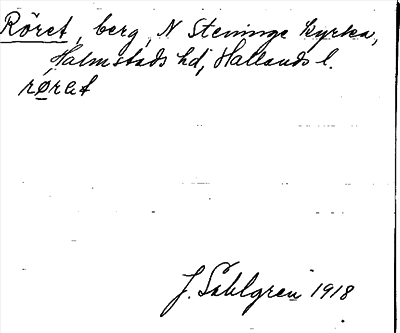 Röret, berg, N Steninge kyrka,
Halmstads hd, Hallands l.
rørɛt
J. Sahlgren 1918